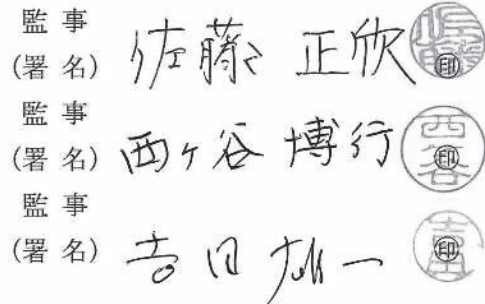 監事
(署名) 佐藤 正欣 印
監事
(署名) 西ヶ谷 博行 印
監事
(署名) 吉田 雄一 印